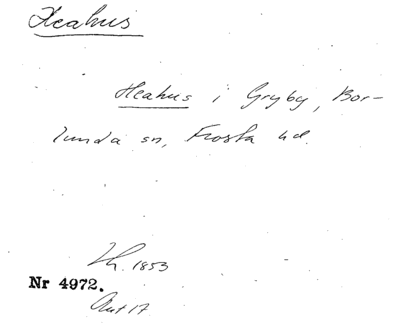 Heahus
Heahus i Gryby, Bor-
lunda sn, Frosta hd.
Th. 1853
Nr 4972.
Ant 17